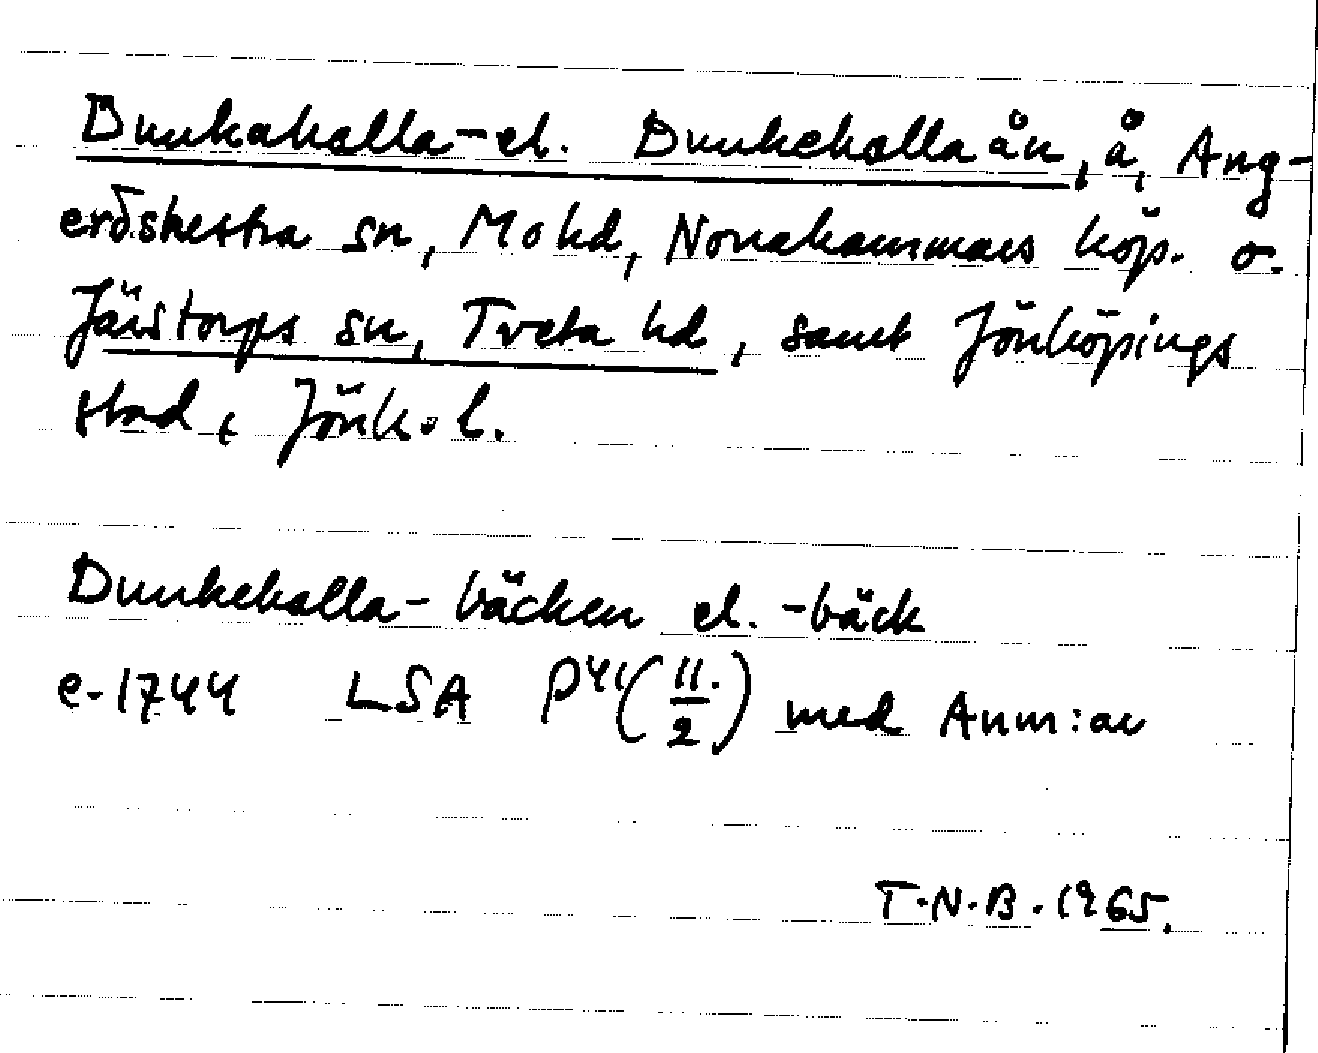 Dunkahalla- el. Dunkehallaån, å, Ang-
erdshestra sn, Mo hd, Norrahammars köp. o.
Järstorps sn, Tveta hd, samt Jönköpings
stad, Jönk. l.
Dunkehalla-bäcken el. -bäck
e. 1744 LSA P41 (11./2) med Anm:ar
T.N.B. 1965.